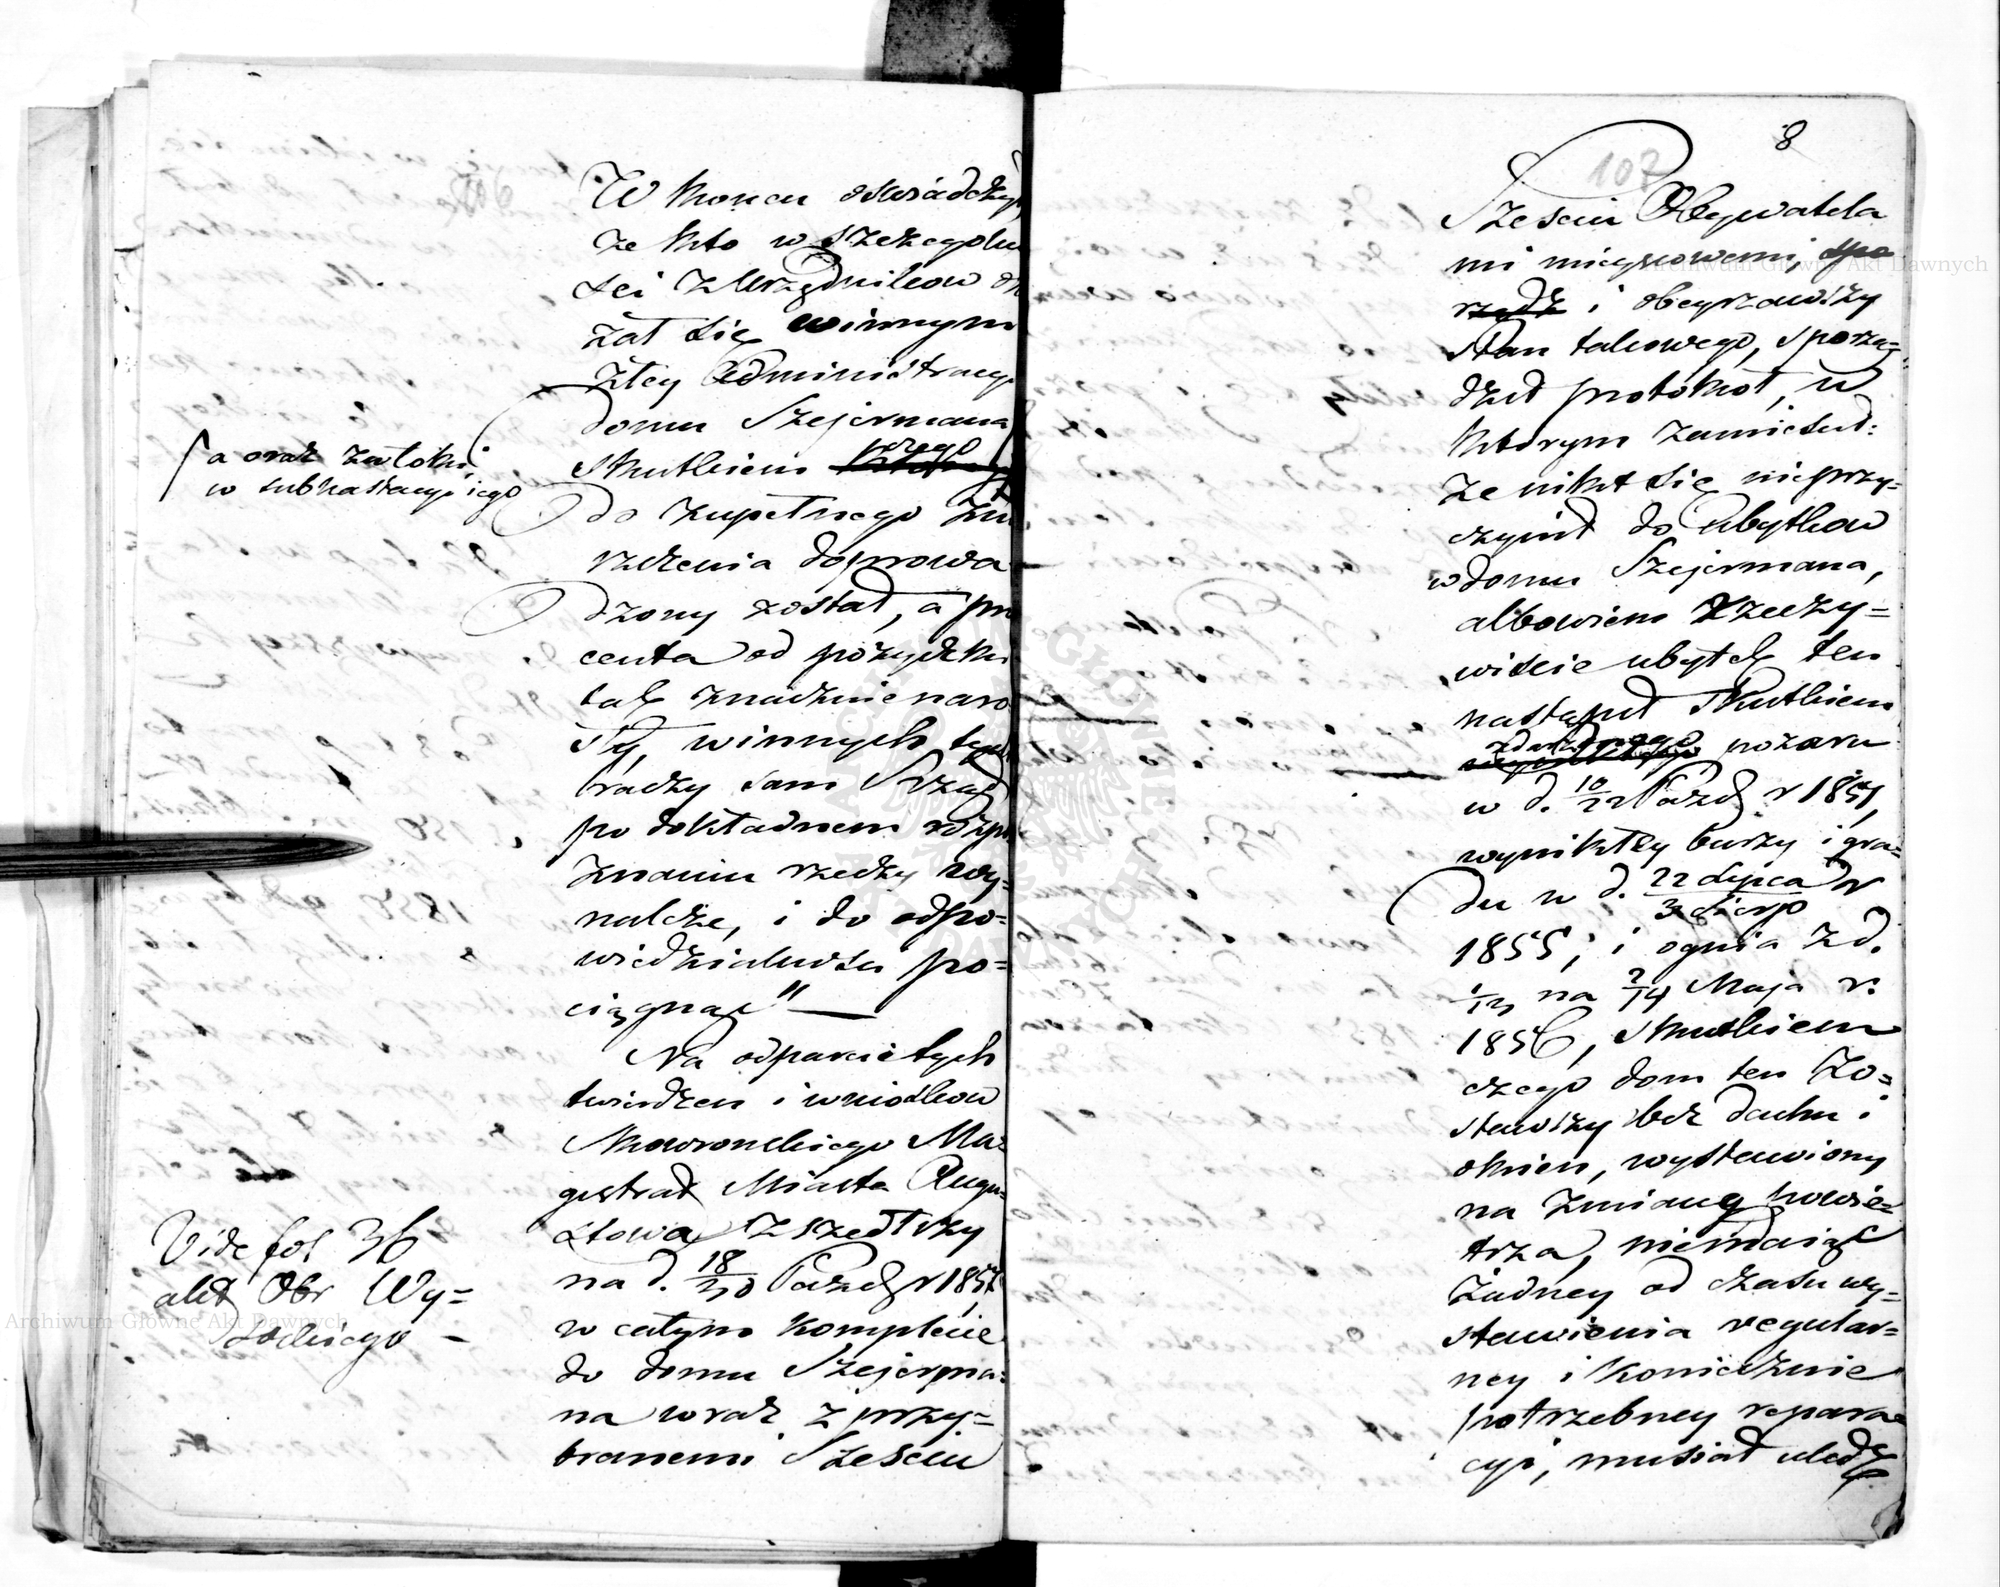 W koncu oswiadczy
że kto w szczegolno
sci z Urzędnikow oka
zał się winnym
złey Administracyi
domu Szejermana
skutkiem czego
a oraz załoki
w subhastacyi iego
do zupełnego zni
szczenia doprowa
dzony został, a pro
centa od pożyczki
tak znacznie naro
sły, winnych tego
braczy sam Rząd
po dokładnem rozpo
znaniu rzeczy wy=
nalezc, i do odpo=
wiedzialnosci po=
ciągnąć"—
Na odparcie tych
twierdzen i wniosków
Skowronskiego Ma=
gistrat Miasta Augu=
stowa zszedłszy
na d. 18/30 Pazdz r 1857
w całym komplecie
do domu Szejerma=
na wraz z przy=
branemi Szesciu
Vide fol 36
akt Obr Wy=
sockiego —
8
107
Szesciu Obywatela
mi mieyscowemi, spo
rządz i obeyrzawszy
stan takowego, sporzą=
dził protokoł, w
ktorym zamiescił:
że nikt się nieprzy=
czynił do ubytkow
w domu Szejermana,
albowiem rzeczy=
wiscie ubytek ten
nastąpił skutkiem
zdarzonego pożaru
w d. 10/22 Pazdz r 1851,
wynikłey burzy i gra=
du w d. 22 Lipca/3 Sierp r
1855, i ognia z d.
1/13 na 2/14 Maja r.
1856, skutkiem
czego dom ten zo=
stawszy bez dachu i
okien, wystawiony
na zmianę powie=
trza, niemaiąc
żadney od czasu wy=
stawienia regular=
ney i koniecznie
potrzebney repara
cyi, musiał uledz